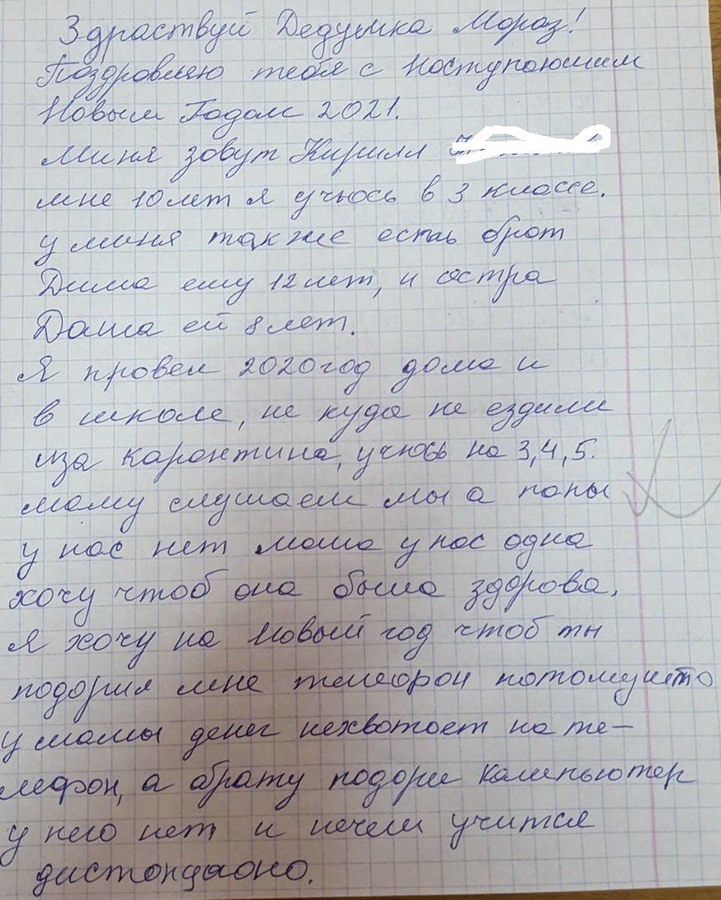 Здраствуй Дедушка Мораз!
Поздровляю тебя сНоступоюшим
Новым Годом 2021.
Миня зовут Кирилл
мне 10 лет я учюсь в 3 классе.
у миня также есть брат
Дима ему 12 лет, и сестра
Даша ей 8 лет.
Я провел 2020 год дома и
в школе, не куда не ездили
иза каронтина, учюсь на 3,4,5.
маму слушаем мы а папы
у нас нет мама у нас одна
хочу чтоб она была здорова.
Я хочу на Новый год чтоб ты
подорил мне телефон потомушто
у мамы денег нехвотоет на те-
лефон, а брату подори компьютер
у него нет и нечем учится
дистонцаоно.